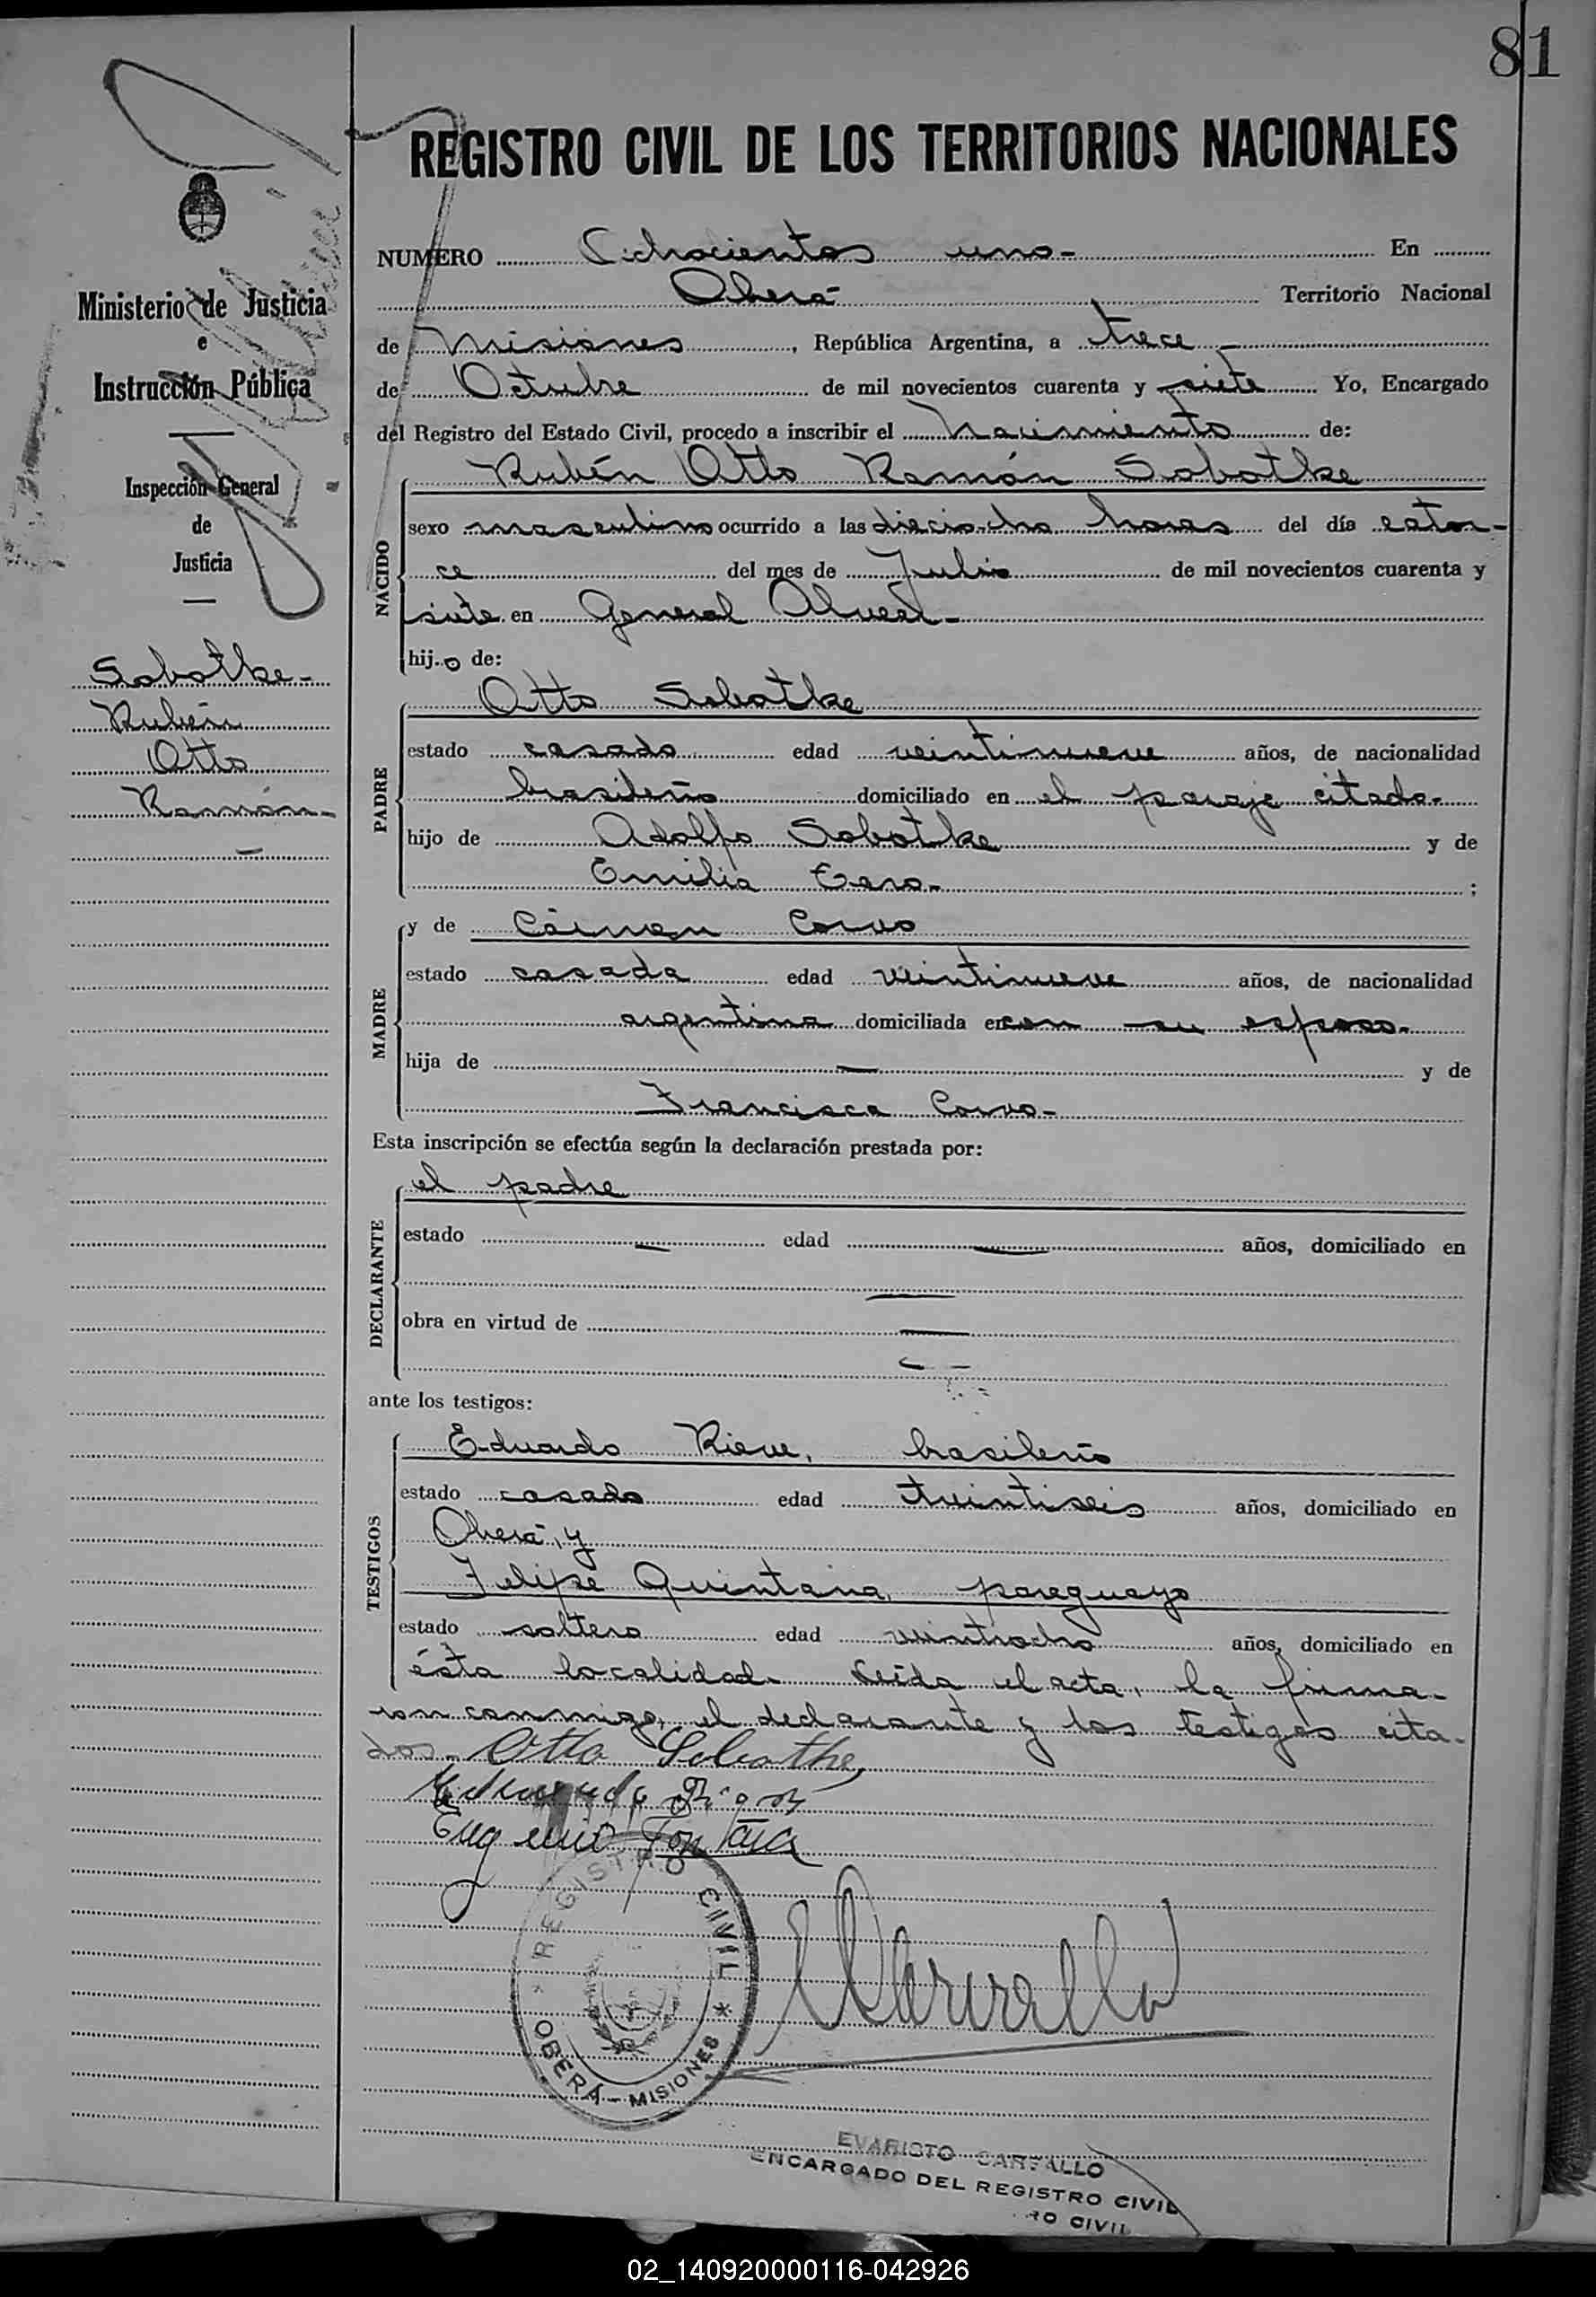 81
REGISTRO CIVIL DE LOS TERRITORIOS NACIONALES
Ministerio de Justicia
e
Instrucción Pública
Inspección General
de
Justicia
Sobotke-
Rubén
Otto
Ramón-
NUMERO Ochocientos uno- En
Oberá Territorio Nacional
de Misiones, República Argentina, a trece
de Octubre de mil novecientos cuarenta y siete Yo, Encargado
del Registro del Estado Civil, procedo a inscribir el nacimiento de:
NACIDO
Rubén Otto Ramón Sobotke
sexo masculino ocurrido a las dieciocho horas del día cator-
ce del mes de Julio de mil novecientos cuarenta y
siete en General Alvear-
hijo de:
PADRE
Otto Sobotke
estado casado edad veintinueve años, de nacionalidad
brasileño domiciliado en el paraje citado.
hijo de Adolfo Sobotke y de
Emilia ;
MADRE
y de Cármen Corvo
estado casada edad veintinueve años, de nacionalidad
argentina domiciliada en con su esposo.
hija de — y de
Francisca Corvo-
Esta inscripción se efectúa según la declaración prestada por:
DECLARANTE
el padre
estado — edad — años, domiciliado en
—
obra en virtud de —
ante los testigos:
TESTIGOS
Eduardo brasileño
estado casado edad años, domiciliado en
Oberá, y
Felipe Quintana, paraguayo
estado soltero edad veintiocho años, domiciliado en
ésta localidad. Leída el acta, la firma-
ron conmigo, el declarante y los testigos cita-
dos.- Otto Sobotke,
REGISTRO CIVIL * OBERÁ - MISIONES *
EVARISTO CARVALLO
ENCARGADO DEL REGISTRO CIVIL
RO CIVIL
02_140920000116-042926